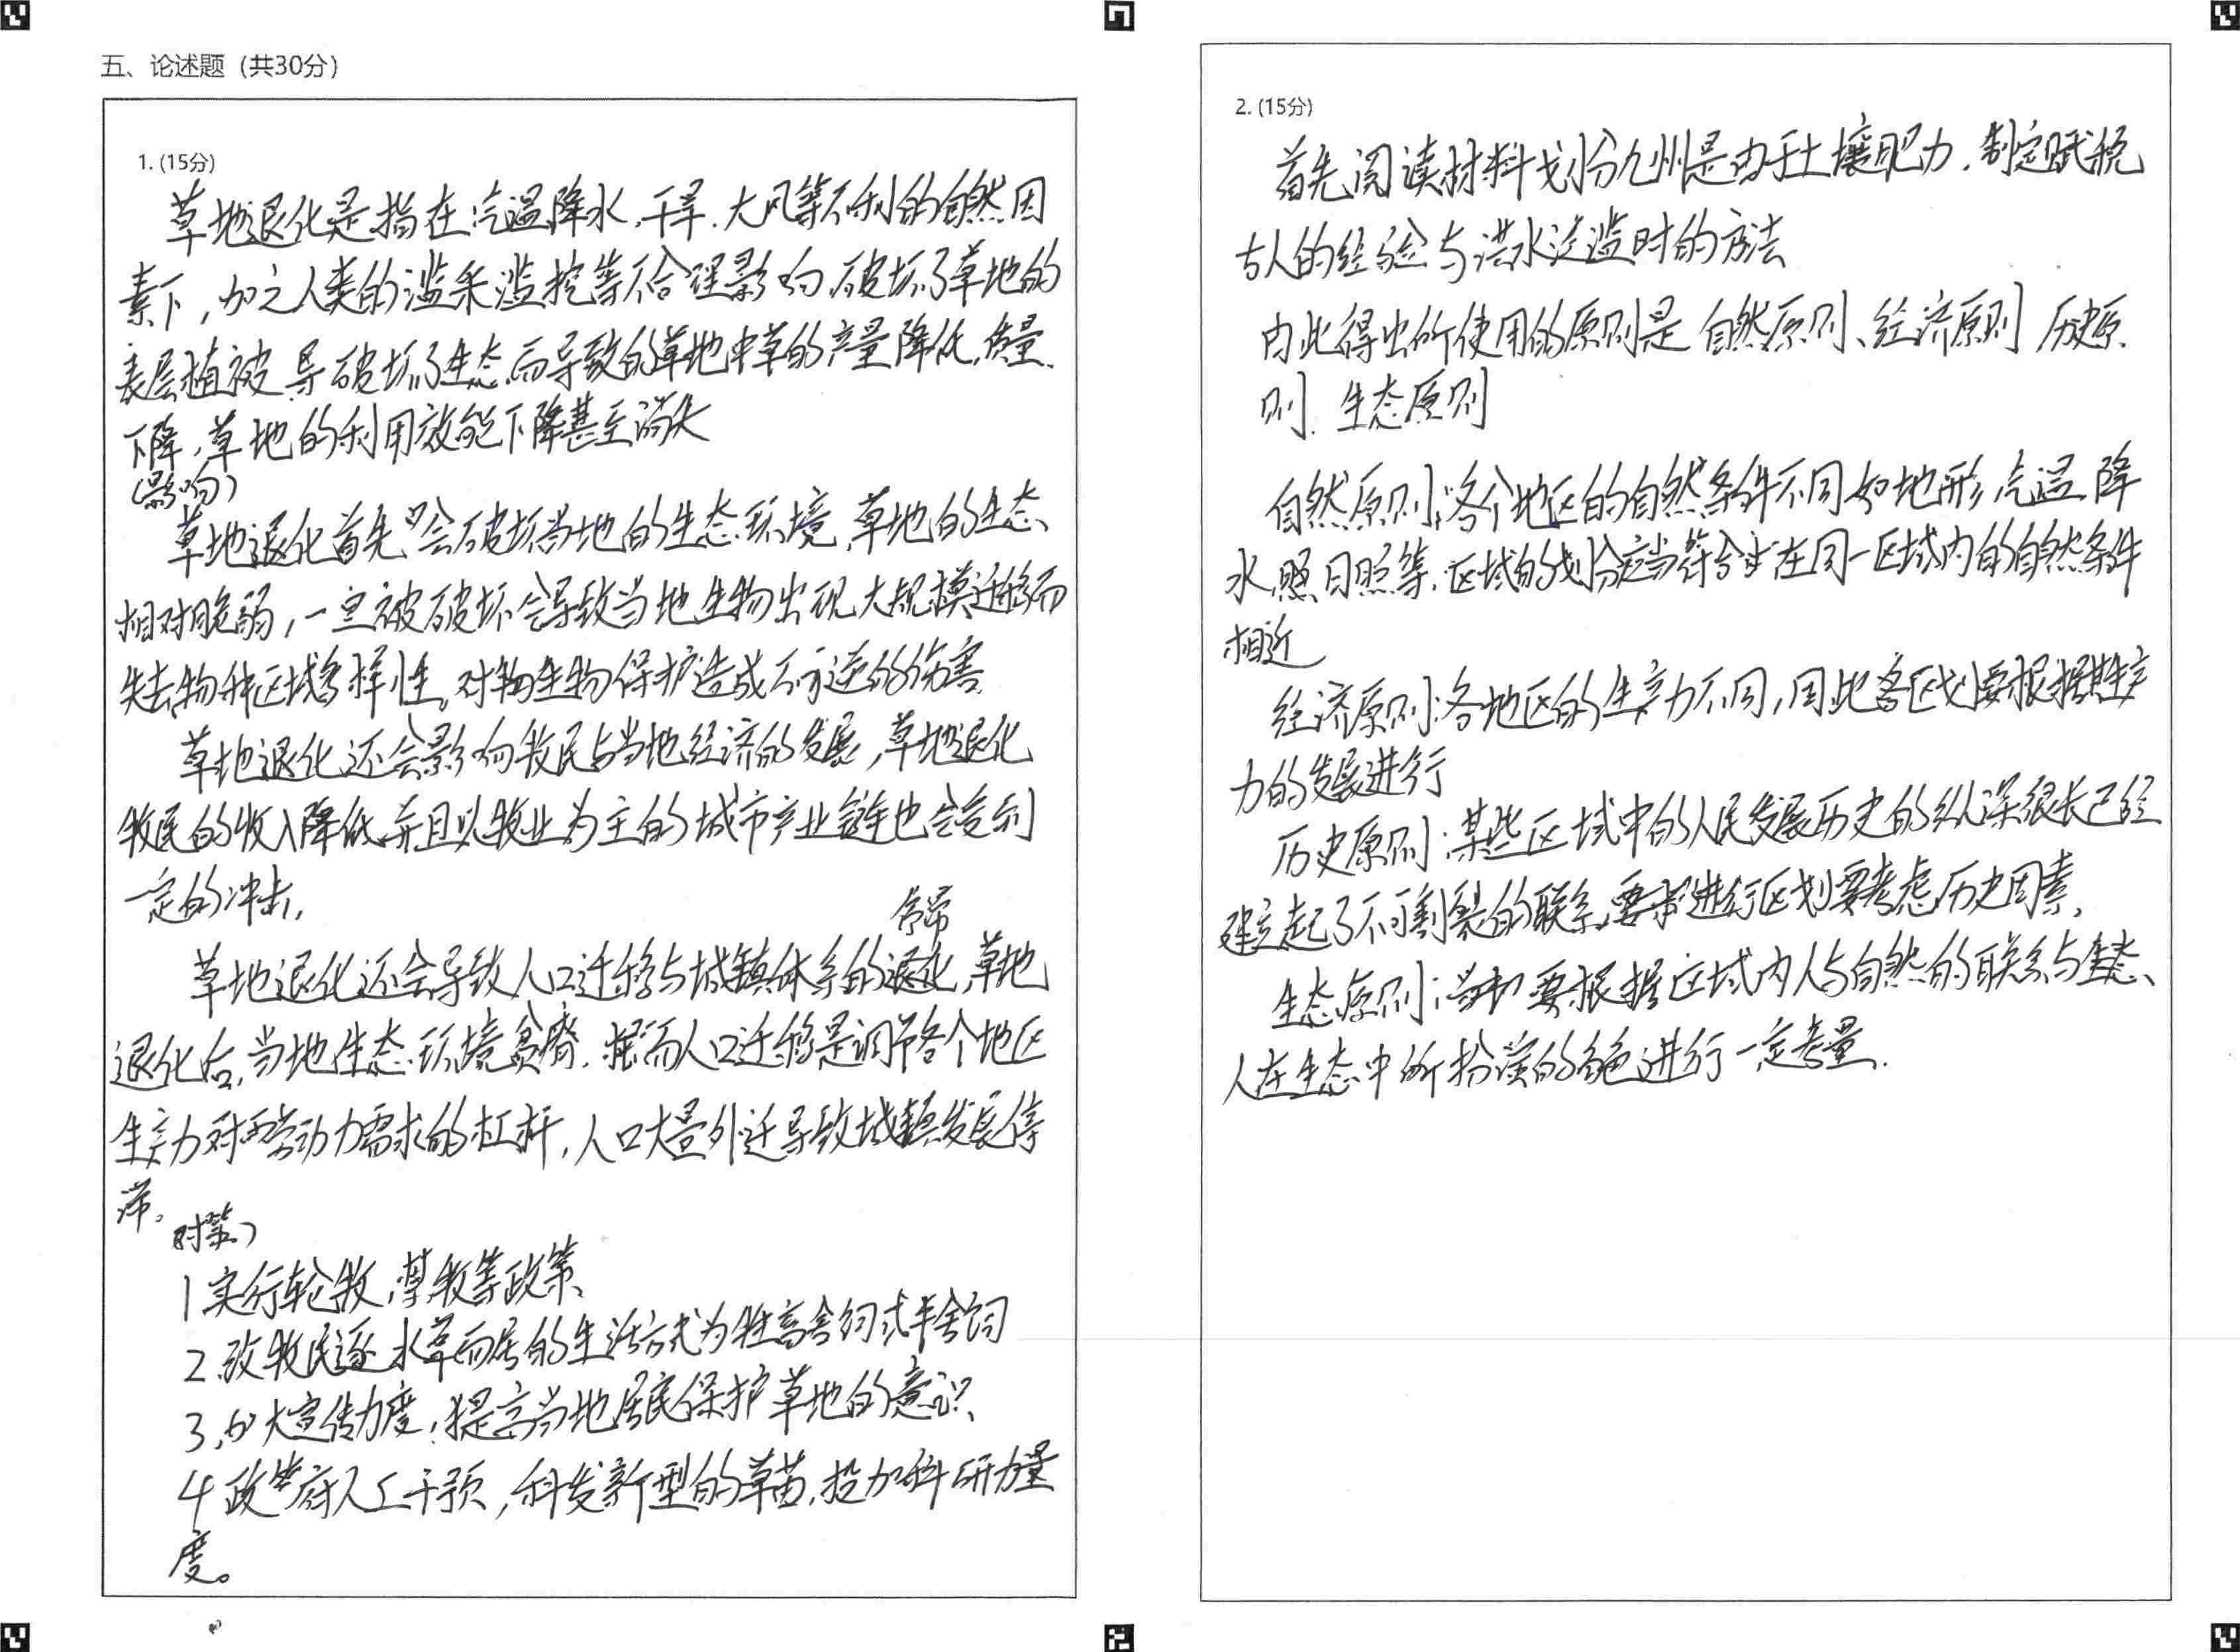 五、论述题（共30分）
1. (15分)
草地退化是指在气温降水，干旱．大风等不利的自然因
素下，加之人类的滥采滥挖等不合理影响，破坏了草地的
表层植被 导破坏了生态，而导致的草地中草的产量降低，质量
下降，草地的利用效能下降甚至消失
(影响)
草地退化首先会破坏当地的生态环境，草地的生态
相对脆弱，一旦被破坏会导致当地生物出现大规模迁移而
失去物种区域多样性。对生物保护造成不可逆的伤害
草地退化还会影响牧民与当地经济的发展，草地退化
牧民的收入降低，并且以牧业为主的城市产业链也会受到
一定的冲击，
草地退化还会导致人口迁移与城镇体系的退化，草地
退化后，当地生态环境贫瘠．而人口迁移是调节各个地区
生产力对劳动力需求的杠杆，人口大量外迁导致城镇发展停
滞。
对策）
1 实行轮牧，禁牧等政策、
2．改牧民逐水草而居的生活方式为牲畜舍饲或半舍饲
3．加大宣传力度，提高当地居民保护草地的意识、
4 政府人工干预，科发新型的草苗，投加科研力量
度。
2. (15分)
首先阅读材料划分九州是由于土壤肥力．制定赋税
古人的经验与洪水泛滥时的方法
由此得出所使用的原则是 自然原则、经济原则 历史原
则．生态原则
自然原则：各个地区的自然条件不同如地形，气温 降
水 日照等．区域的划分应当符合在同一区域内的自然条件
相近
经济原则：各地区的生产力不同，因此各区划要根据其生产
力的发展进行
历史原则：某些区域中的人民发展历史的纵深很长已经
建立起了不可割裂的联系，进行区划要考虑历史因素，
生态原则：要根据区域内人与自然的联系与生态、
人在生态中所扮演的角色进行一定考量．